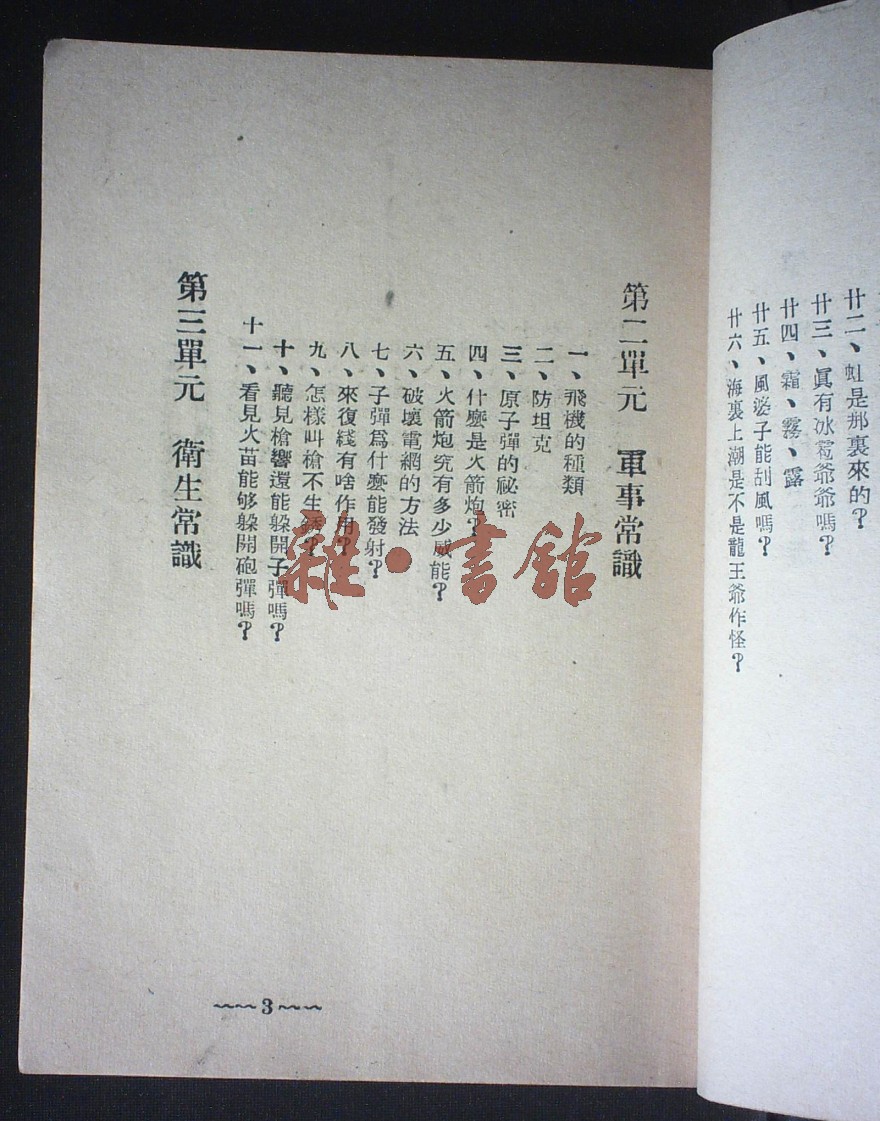 廿二、虹是那裏來的？
廿三、眞有冰雹爺爺嗎？
廿四、霜、霧、露
廿五、風婆子能刮風嗎？
廿六、海裏上潮是不是龍王爺作怪？
第二單元　軍事常識
一、飛機的種類
二、防坦克
三、原子彈的祕密
四、什麼是火箭炮？
五、火箭炮究有多少威能？
六、破壞電網的方法
七、子彈爲什麼能發射？
八、來復綫有啥作用？
九、怎樣叫槍不生銹？
十、聽見槍響還能躲開子彈嗎？
十一、看見火苗能够躲開砲彈嗎？
第三單元　衛生常識
3
雜·書館